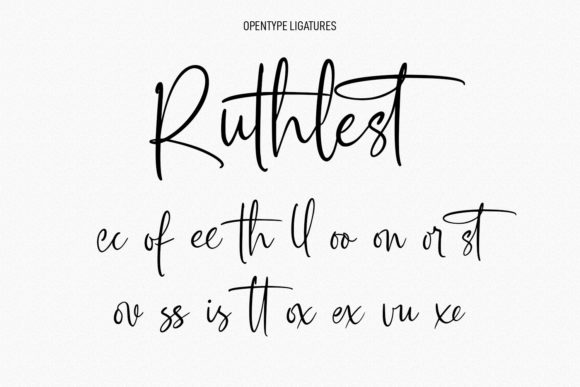 OPENTYPE LIGATURES
Ruthlest
cc of ee th ll oo on or st
ov ss is tt ox ex vu xe